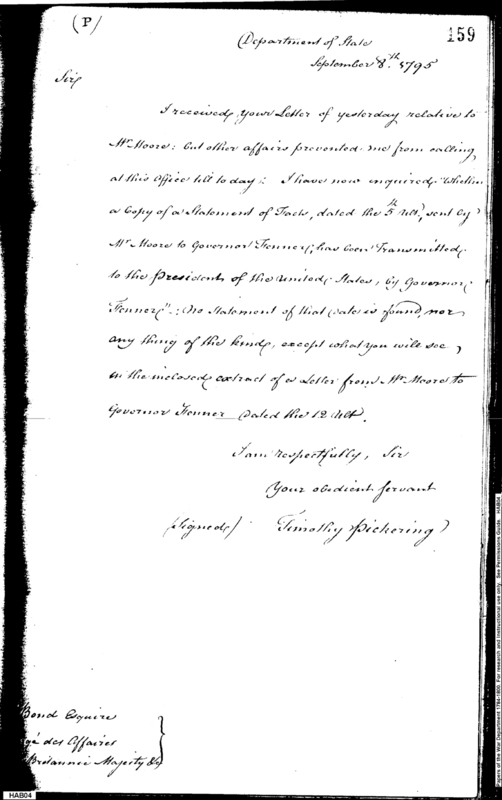 (P)
159
Department of State
September 8.th 1795
Sir,
I received your Letter of yesterday relative to
Mr Moore: but other affairs prevented me from calling,
at this Office till to day: I have now inquired "Whether
a Copy of a Statement of Facts, dated the 5th Ult,, sent by
Mr Moore to Governor Fenner, has been Transmitted
to the President of the United States, by Governor
Fenner": No Statement of that date is found, nor
any thing of the kind, except what you will see,
in the inclosed extract of a Letter from Mr Moore to
Governor Fenner dated the 12 Ult.
I am respectfully, Sir
Your obedient Servant
(Signed) Timothy Pickering
Bond Esquire
gé des Affaires
Britannic Majesty &c
HAB04
Papers of the War Department 1784-1800. For research and instructional use only. See Permissions Guide HAB04